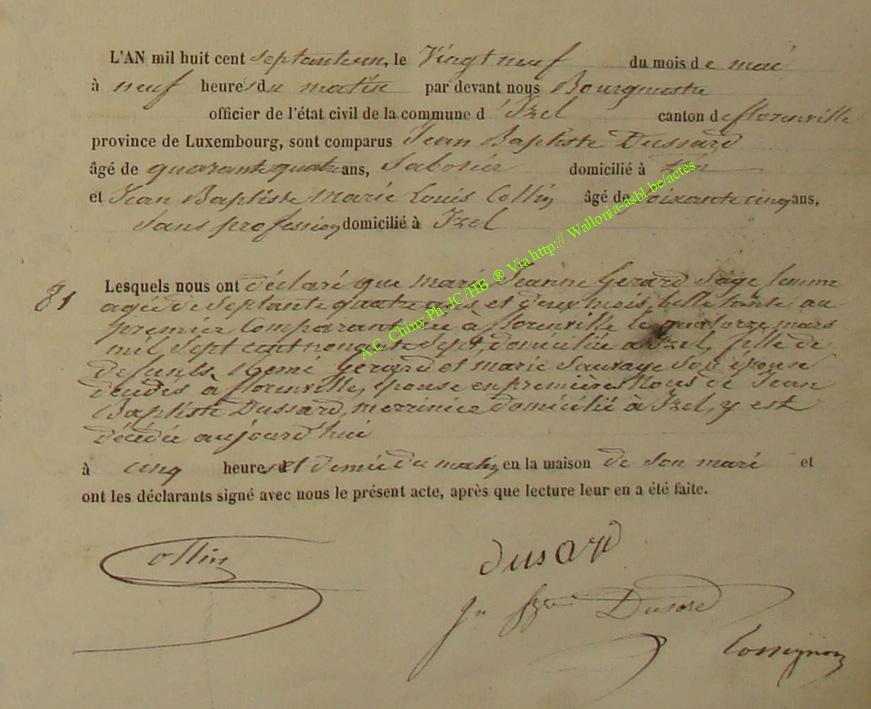 L'AN mil huit cent septanteun, le Vingt neuf du mois de mai
à neuf heures du matin par devant nous Bourgmestre
officier de l'état civil de la commune d'Izel canton de florenville
province de Luxembourg, sont comparus Jean Baptiste Dussard
âgé de quarante quatre ans, Sabotier domicilié à Izel
et Jean Baptiste Marie Louis Collin âgé de soixante cinq ans,
Sans profession domicilié à Izel
81 Lesquels nous ont déclaré que Marie Jeanne Gerard Sage femme
agée de Septante quatre ans et deux mois, belle tante au
premier Comparant née à florenville le quatorze mars
mil Sept cent nonante Sept, domiciliée à Izel, fille de
defunts Remi Gerard et marie Sauvage Son épouse
décédés à florenville, épouse en premières Noces de Jean
Baptiste Dussard, domicilié à Izel, y est
décédée aujourd'hui
à cinq heures et demie du matin en la maison de Son mari et
ont les déclarants signé avec nous le présent acte, après que lecture leur en a été faite.
Collin
Dusard
Jn Dusard
A.C. Chiny Ph. JC /HB. ® Via http:// Wallonia-asbl.be/actes